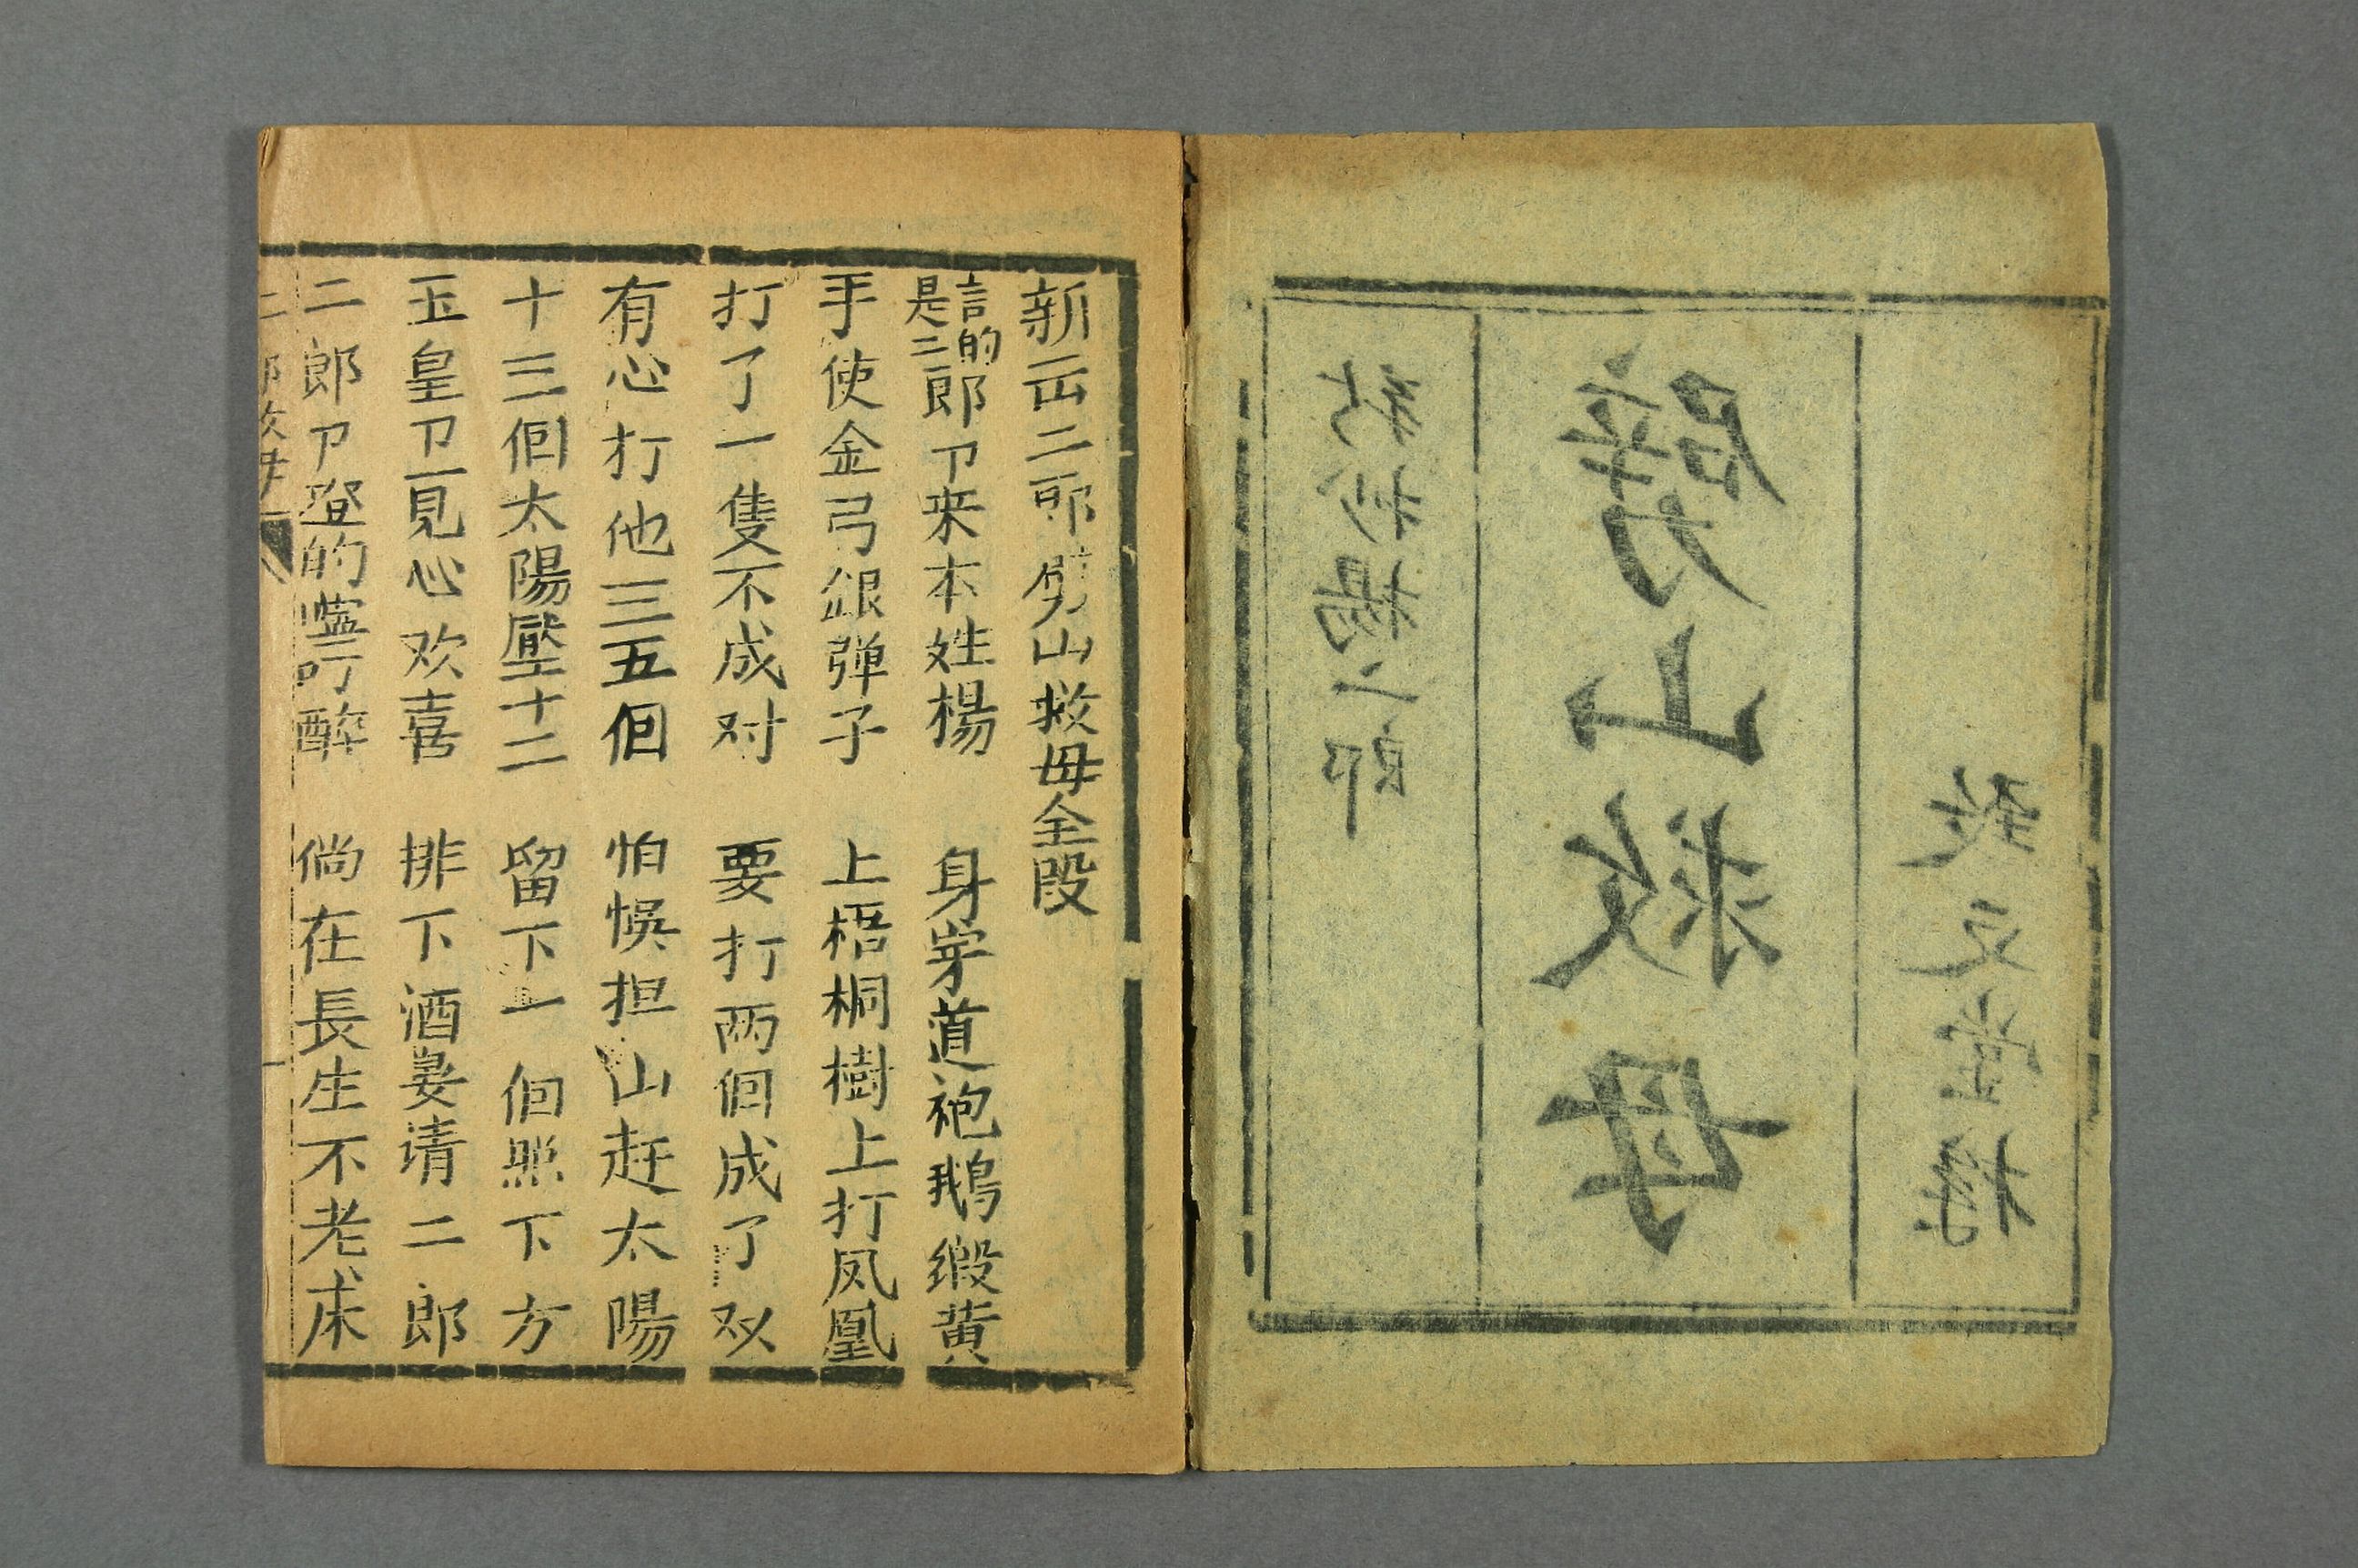 新抄楊二郎
劈山救母
致文堂梓
新云二郎劈山救母全段
言的是二郎卩来本姓楊　身穿道袍鵝緞黄
手使金弓銀弹子　上梧桐樹上打凤凰
打了一隻不成对　要打两個成了双
有心打他三五個　怕悞担山赶太陽
十三個太陽壓十二　留下一個照下方
玉皇卩一見心欢喜　排下酒宴请二郎
二郎卩登的嚀叮醉　倘在長生不老床
二郎救母
一